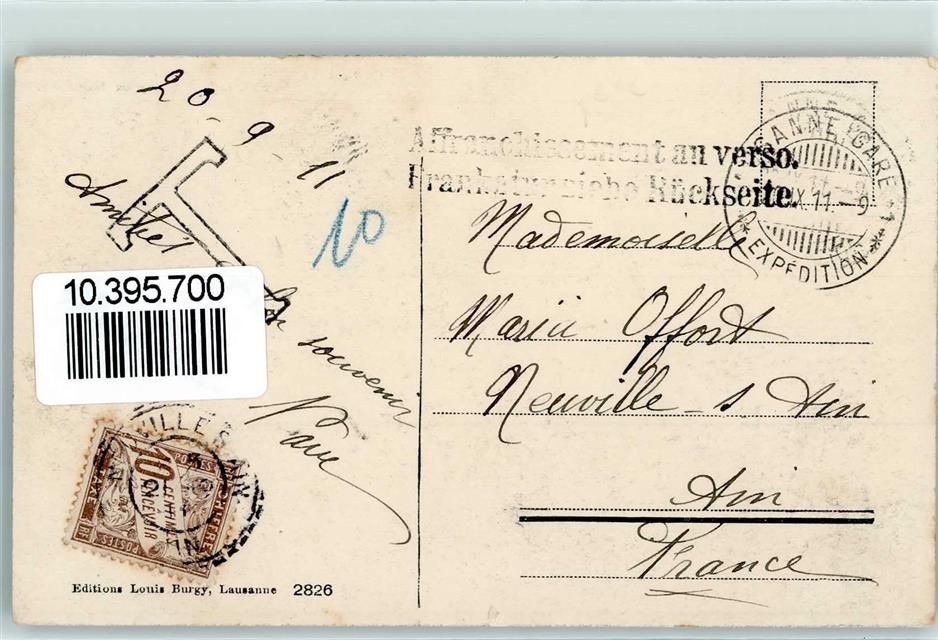 20-9-11
T
10
Affranchissement au verso.
Frankatur siehe Rückseite.
LAUSANNE (GARE) 1
IX.11.-9
** EXPÉDITION **
Mademoiselle
Maria Offort
Neuville-s Ain
Ain
France
Amitiés
souvenir
10.395.700
NEUVILLE S AIN
AIN
POSTES
10
CENTIMES
À PERCEVOIR
CHIFFRE TAXE
Editions Louis Burgy, Lausanne 2826